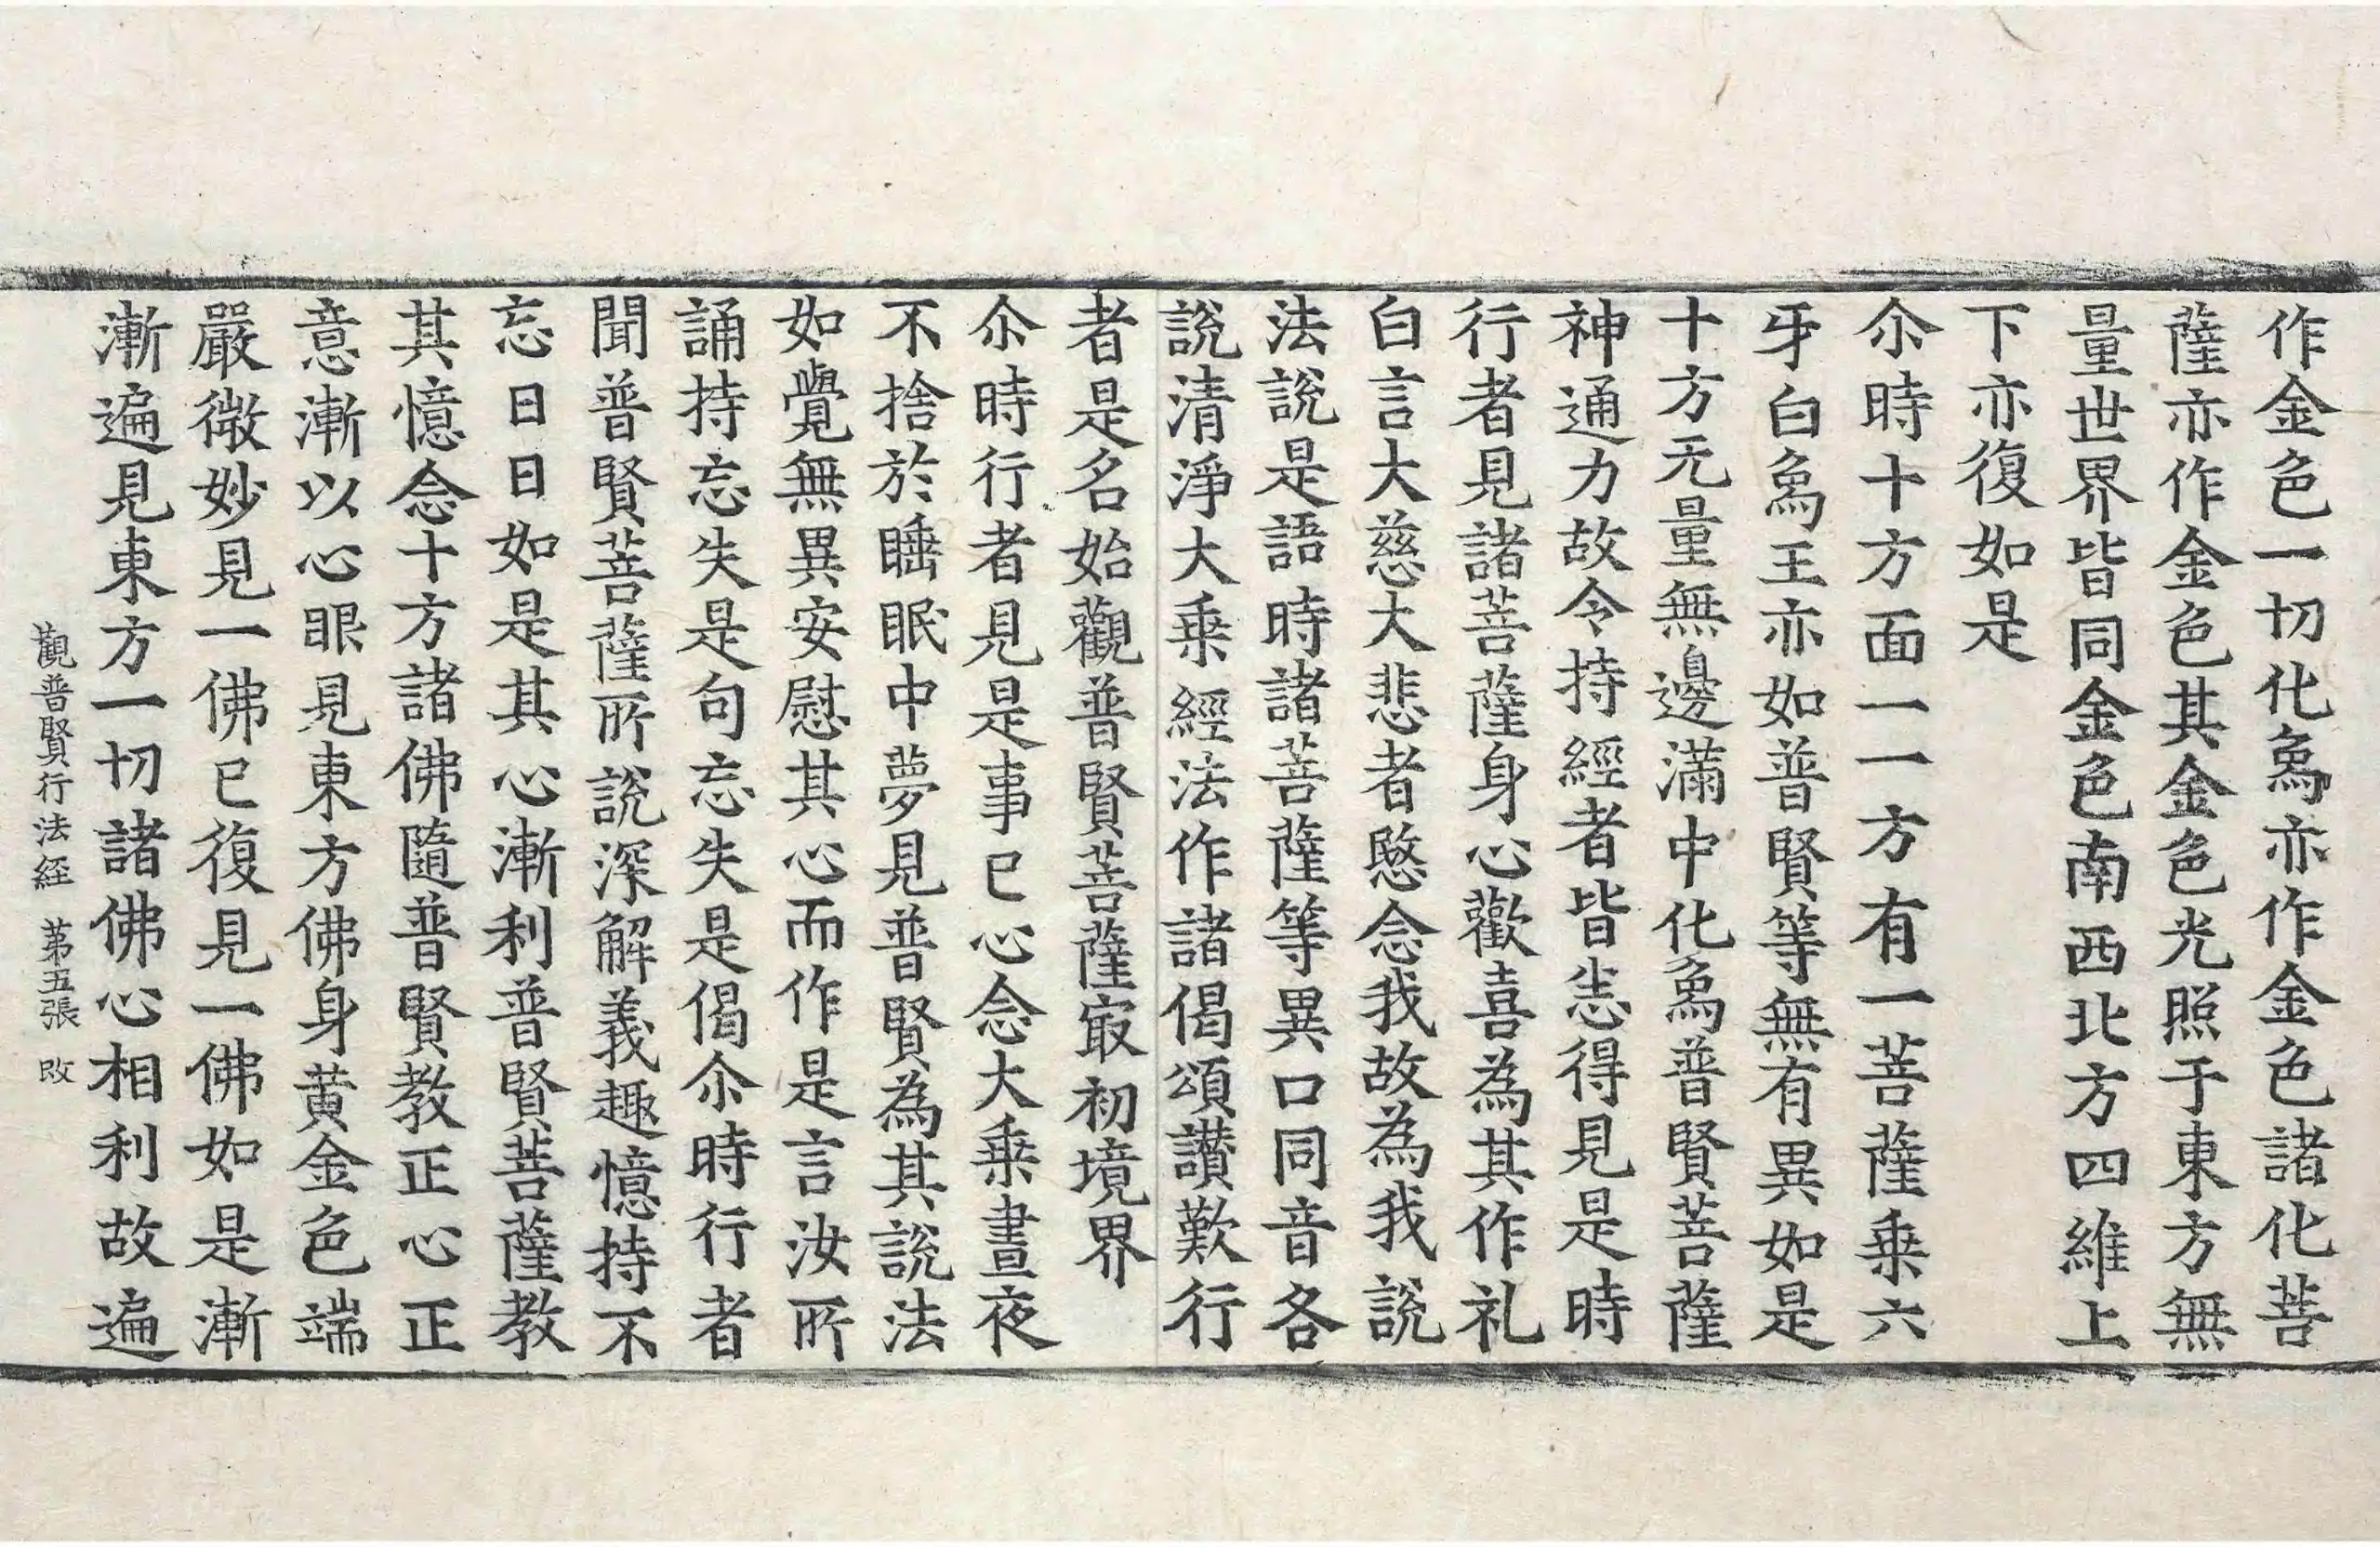 作金色一切化象亦作金色諸化菩
薩亦作金色其金色光照于東方無
量世界皆同金色南西北方四維上
下亦復如是
尒時十方面一一方有一菩薩乗六
牙白象王亦如普賢等無有異如是
十方无量無邊滿中化象普賢菩薩
神通力故令持經者皆悉得見是時
行者見諸菩薩身心歡喜為其作礼
白言大慈大悲者愍念我故為我說
法說是語時諸菩薩等異口同音各
說清淨大乗經法作諸偈頌讃歎行
者是名始觀普賢菩薩㝡初境界
尒時行者見是事已心念大乗晝夜
不捨於睡眠中夢見普賢為其說法
如覺無異安慰其心而作是言汝所
誦持忘失是句忘失是偈尒時行者
聞普賢菩薩所說深解義趣憶持不
忘日日如是其心漸利普賢菩薩教
其憶念十方諸佛隨普賢教正心正
意漸以心眼見東方佛身黄金色端
嚴微妙見一佛已復見一佛如是漸
漸遍見東方一切諸佛心相利故遍
觀普賢行法經 第五張 改